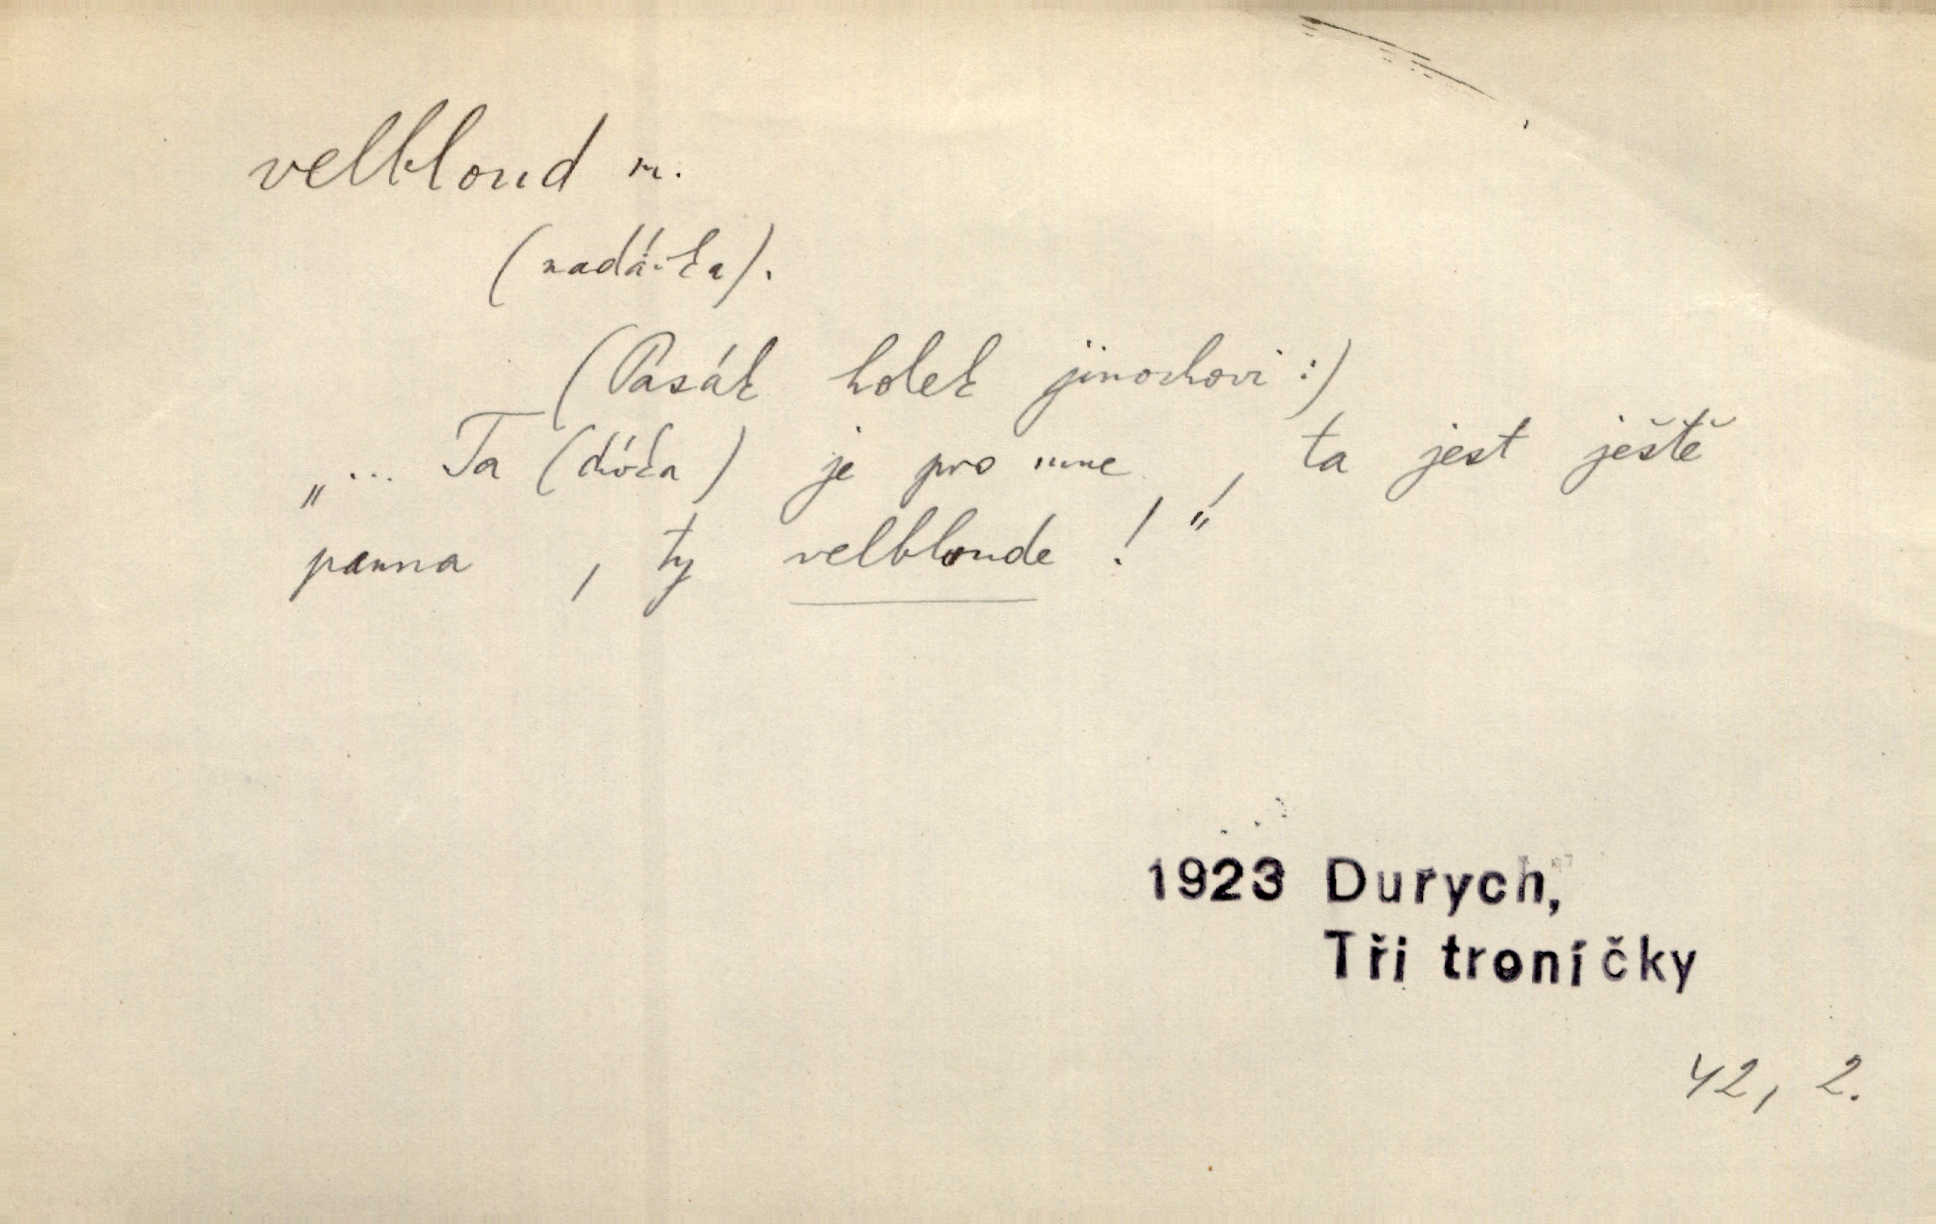 velbloud m.
(nadávka).
(Pasák holek jinochovi:)
„... Ta (dóča) je pro mne, ta jest ještě
panna, ty velbloude!“
1923 Durych,
Tři troníčky
42, 2.